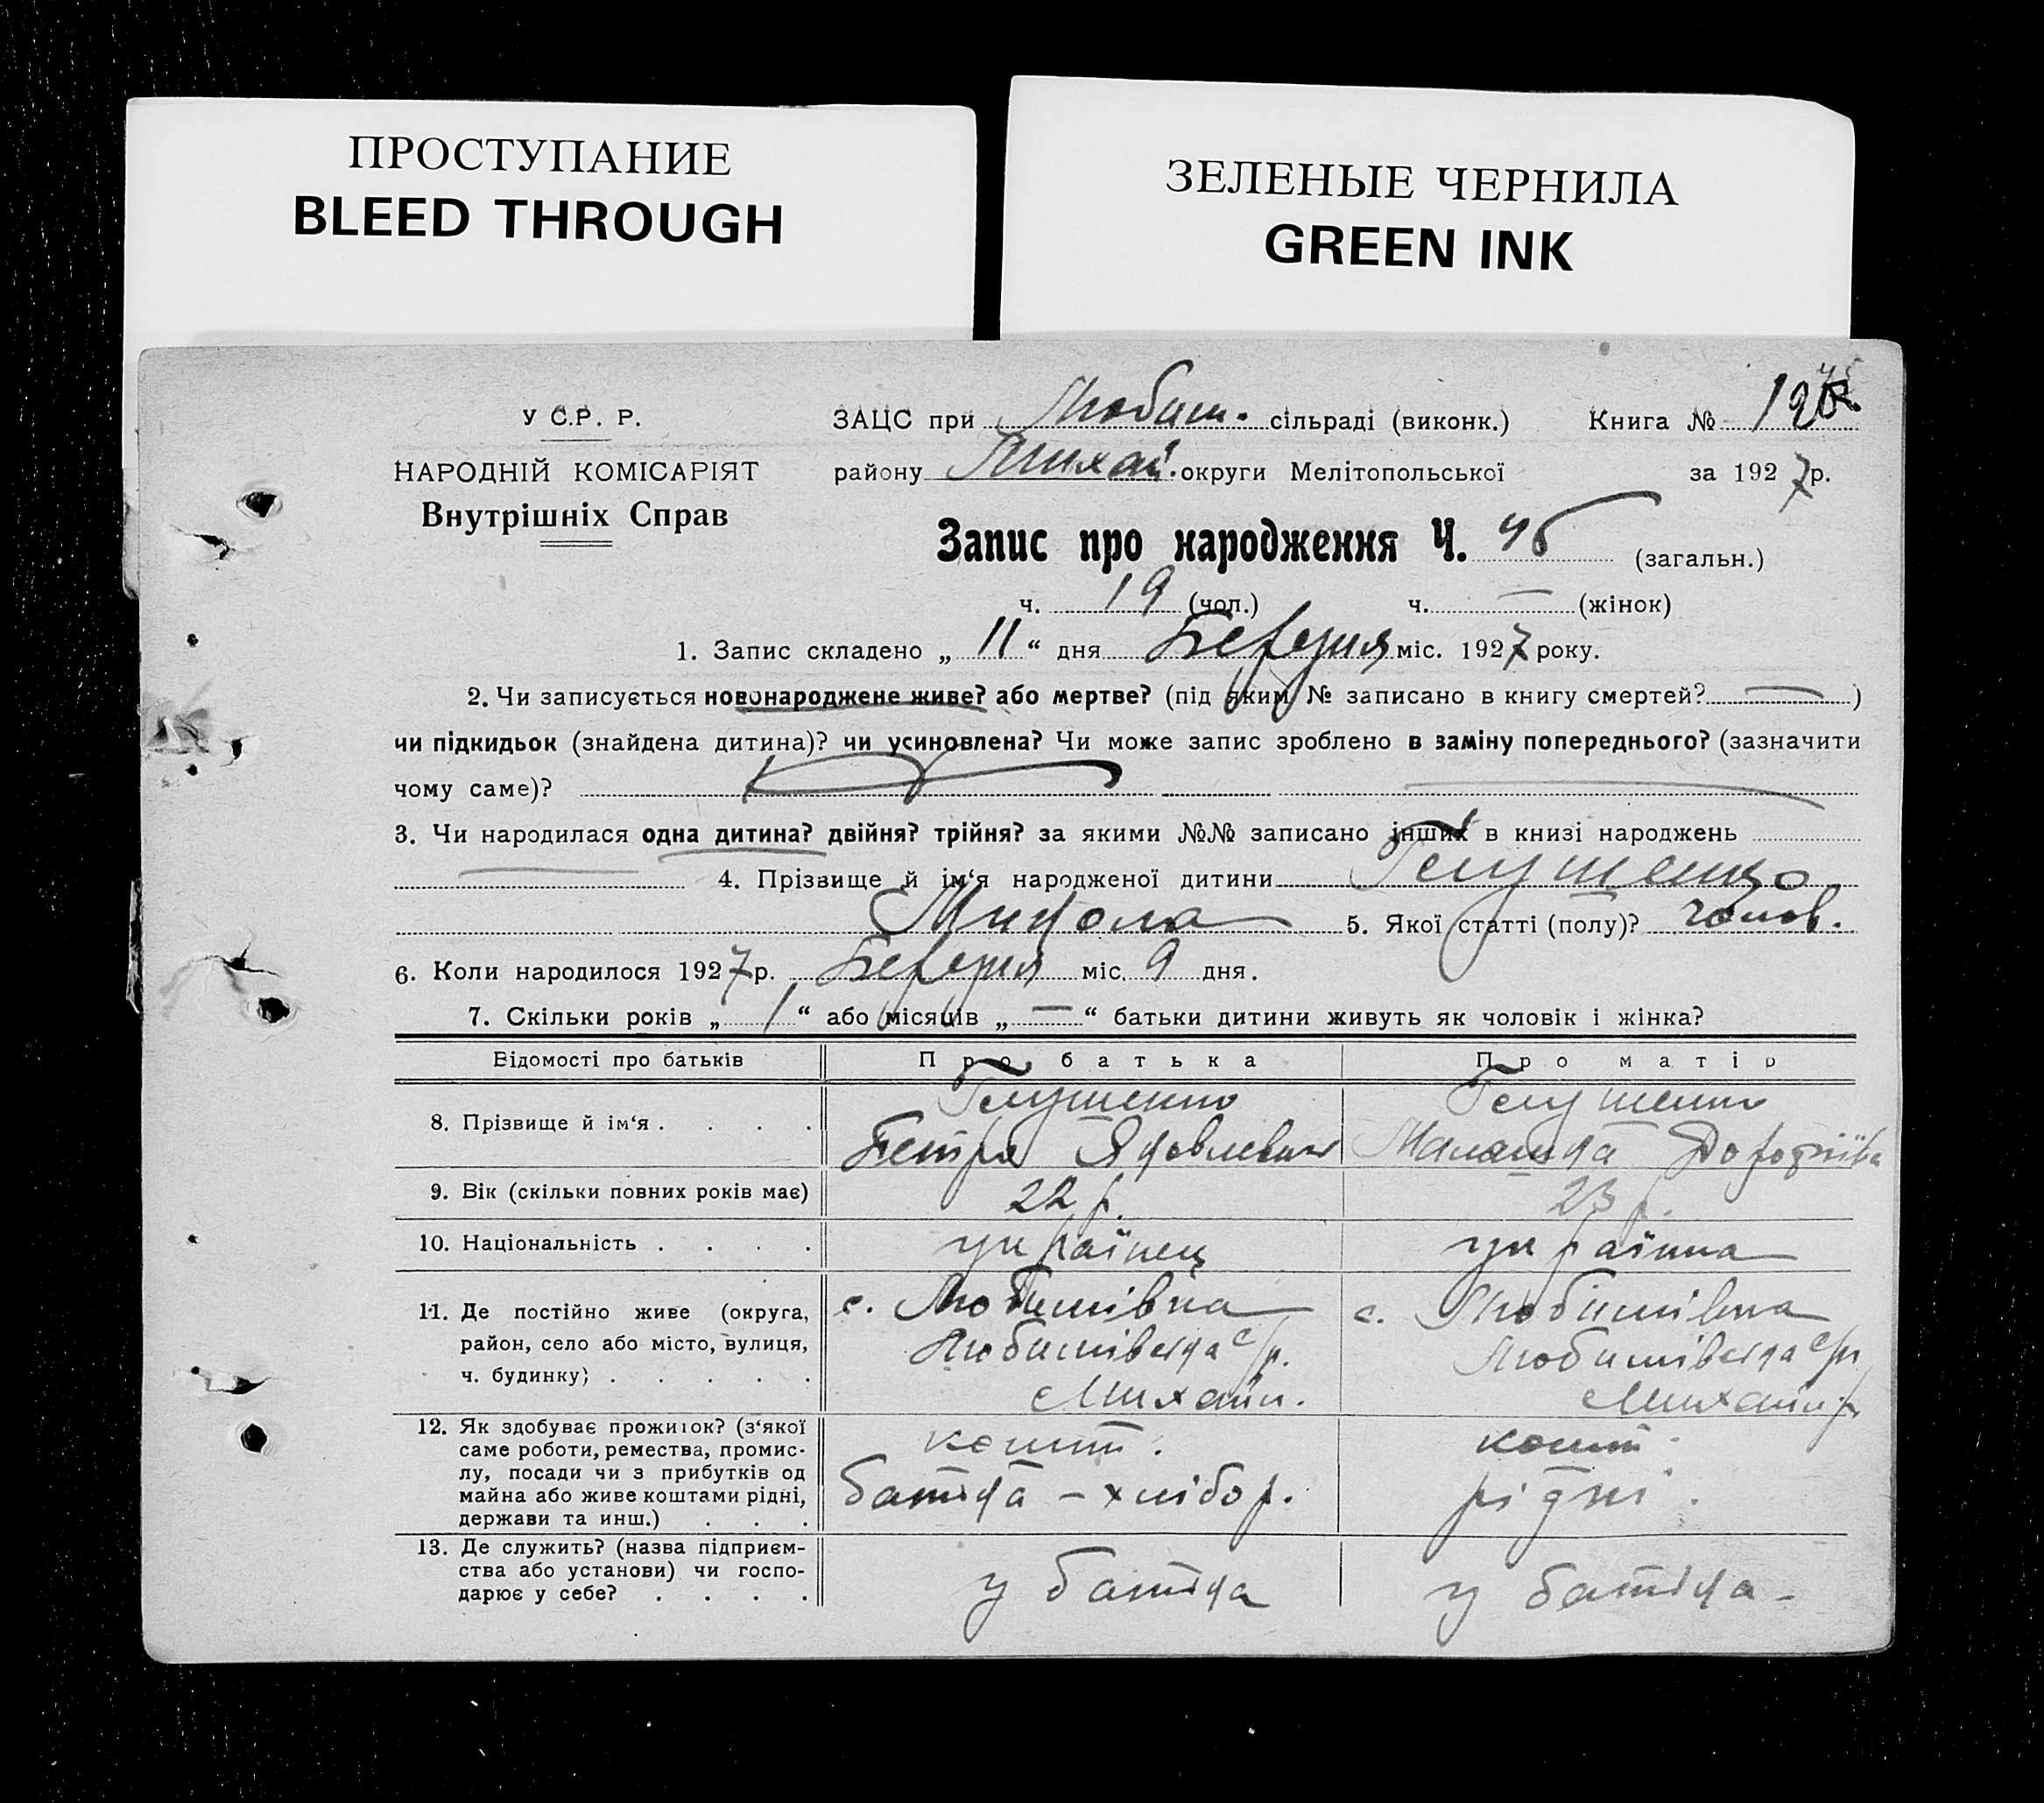 ПРОСТУПАНИЕ
BLEED THROUGH
ЗЕЛЕНЫЕ ЧЕРНИЛА
GREEN INK
У С.Р. Р.
НАРОДНІЙ КОМІСАРІЯТ
Внутрішніх Справ
ЗАЦС при Любим. сільраді (виконк.) Книга №
району Михай. округи Мелітопольської за 1927 р.
Запис про народження Ч. (загальн.)
ч. 19 (чол.) ч. — (жінок)
1. Запис складено „ 11 “ дня Березня міс. 1927 року.
2. Чи записується новонароджене живе? або мертве? (під яким № записано в книгу смертей? — )
чи підкидьок (знайдена дитина)? чи усиновлена? Чи може запис зроблено в заміну попереднього? (зазначити
чому саме)?
3. Чи народилася одна дитина? двійня? трійня? за якими №№ записано інших в книзі народжень
— 4. Прізвище й ім‘я народженої дитини Глущенко
Микола 5. Якої статті (полу)? чолов.
6. Коли народилося 1927 р. Березня міс. 9 дня.
7. Скільки років „ 1 “ або місяців „ — “ батьки дитини живуть як чоловік і жінка?
Відомості про батьків Про батька Про матір
8. Прізвище й ім‘я . . . . Глущенко Глущенко
Петро Яковлевич Малашка Дорофіїв
9. Вік (скільки повних років має) 22 р. 23 р.
10. Національність . . . . українец українка
11. Де постійно живе (округа, с. Любимівка с. Любимівка
район, село або місто, вулиця, Любимівська с/р. Любимівська с/р
ч. будинку) . . . . . Михайл. Михайл. р.
12. Як здобуває прожиток? (з‘якої кошт. кошт.
саме роботи, ремества, промис-
лу, посади чи з прибутків од батька – хлібор. рідні.
майна або живе коштами рідні,
держави та инш.) . . .
13. Де служить? (назва підприєм-
ства або установи) чи госпо- у батька у батька -
дарює у себе? . . . .